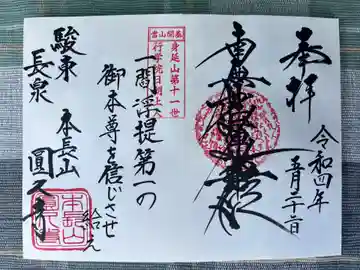 奉拝
令和四年
五月二十二日
南無妙法蓮華経
當山開基
身延山第十一世
行学院日朝上人
一閻浮提第一の
御本尊を信じさせ
給え
駿東
長泉
本長山
圓久寺